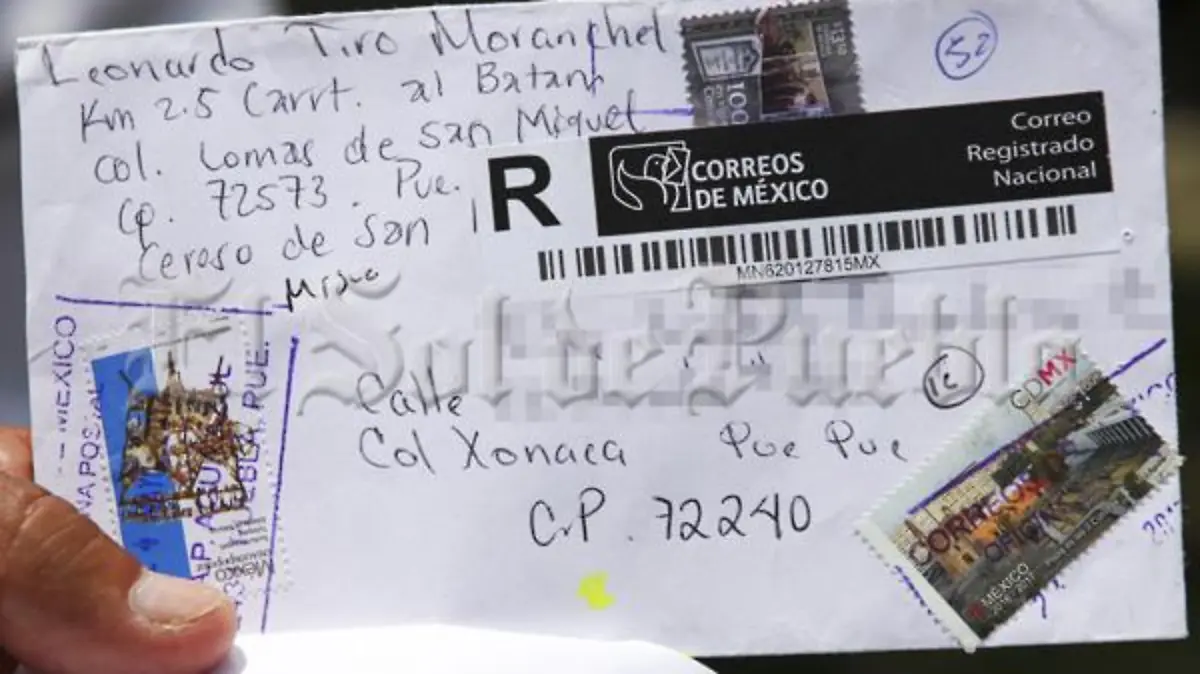 Leonardo Tiro Moranchel
Km 2.5 Carrt. al Batan
Col. Lomas de San Miguel
Cp. 72573. Pue.
Cereso de San
Migue
52
100
R
CORREOS
DE MÉXICO
Correo
Registrado
Nacional
MN620127815MX
El Sol de Puebla
MEXICO
PUE.
México
Calle
Col Xonaca Pue Pue
C.P. 72240
CDMX
CORREOS
MÉXICO